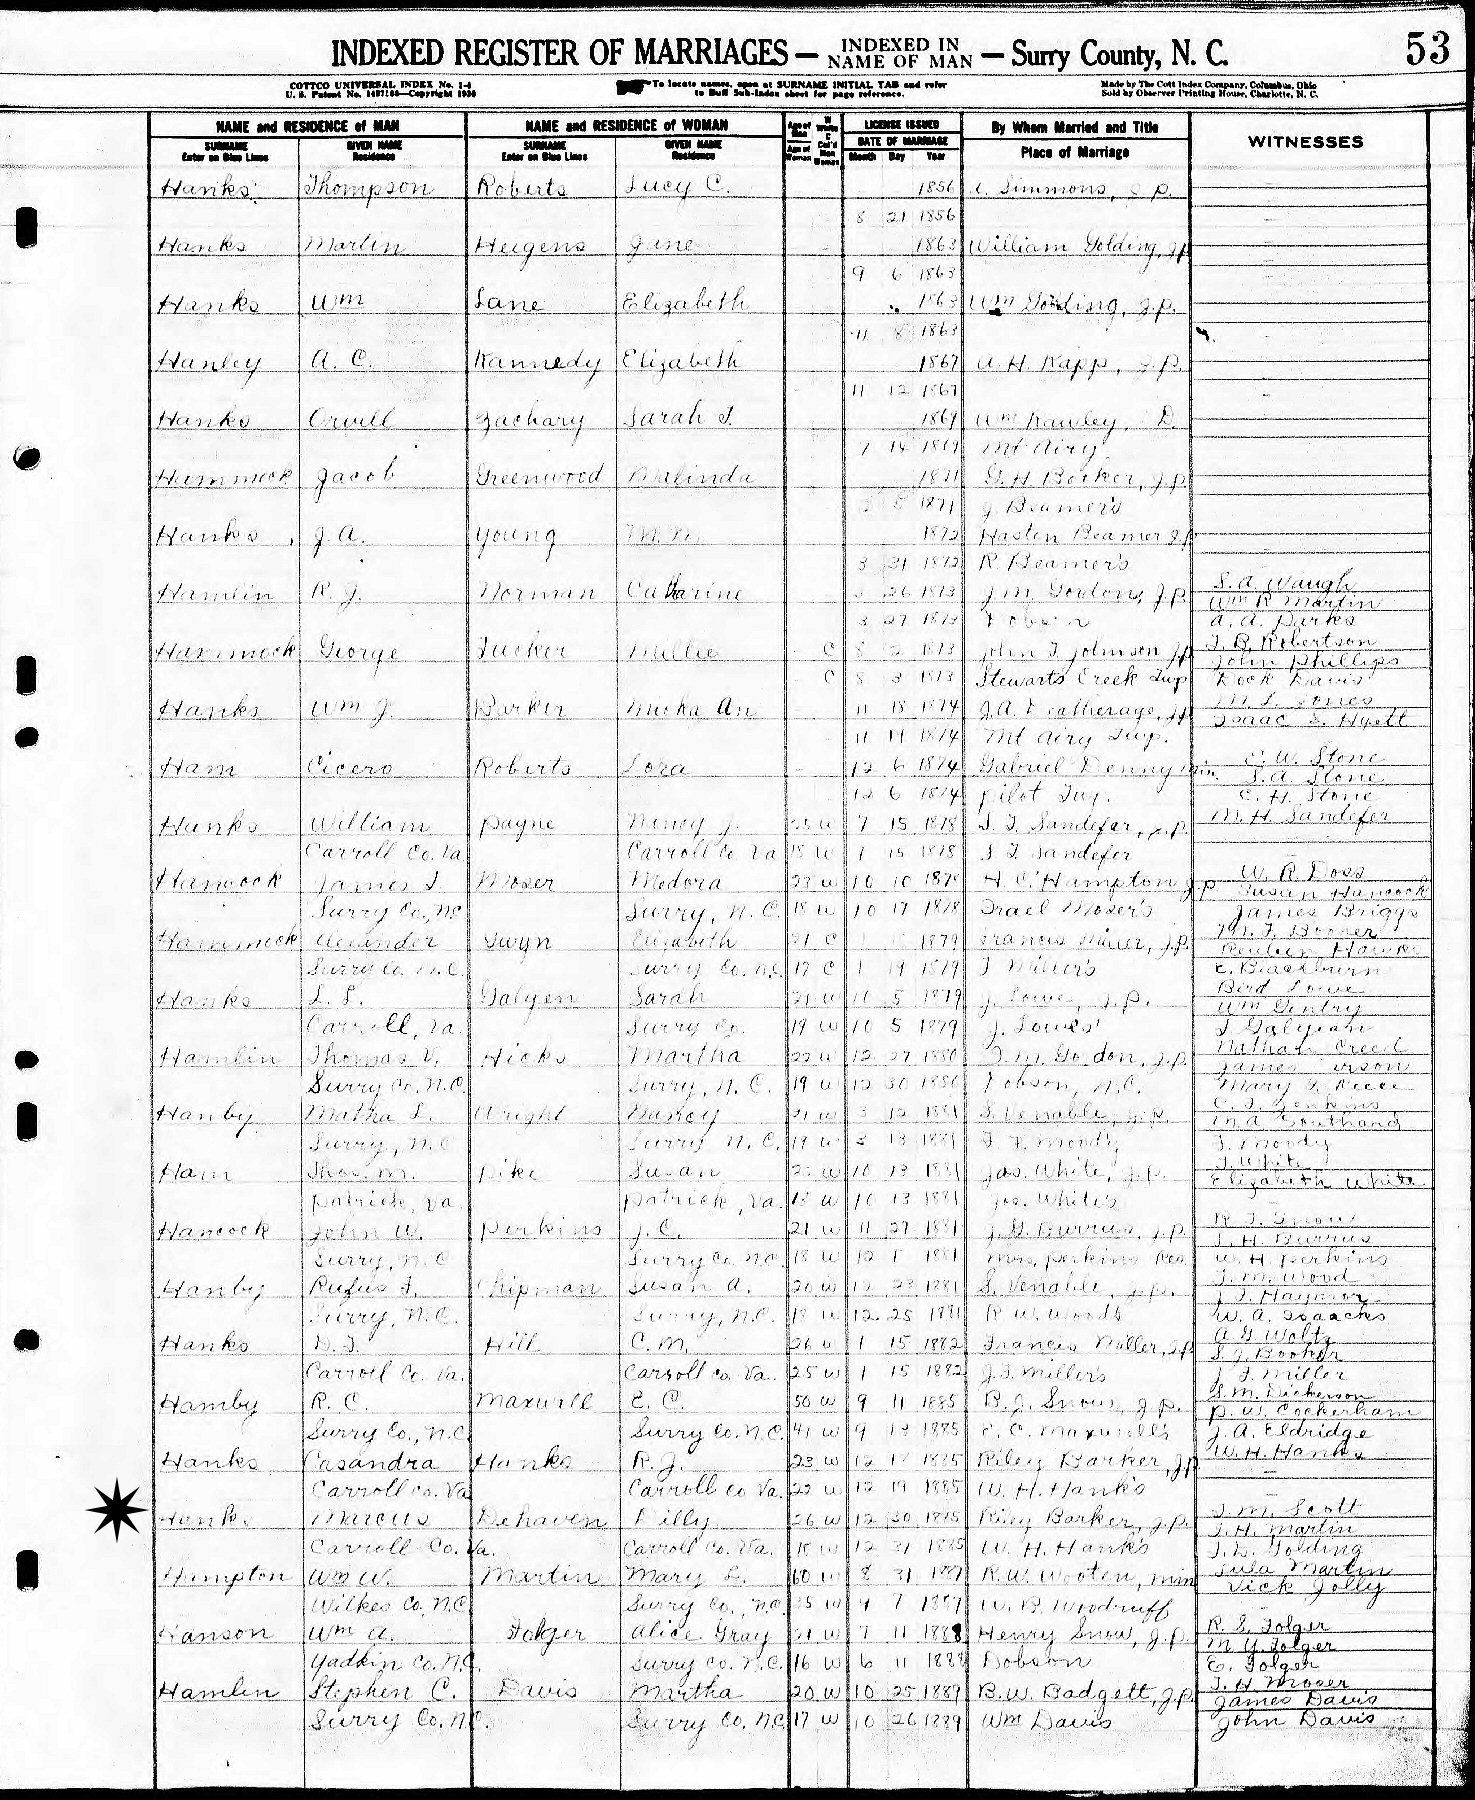 INDEXED REGISTER OF MARRIAGES — INDEXED IN NAME OF MAN — Surry County, N. C. 53
COTTCO UNIVERSAL INDEX No. 1-4
U. S. Patent No. 1497188—Copyright 1930
To locate names, open at SURNAME INITIAL TAB and refer
to Buff Sub-Index sheet for page reference.
Made by The Cott Index Company, Columbus, Ohio
Sold by Observer Printing House, Charlotte, N. C.
NAME and RESIDENCE of MAN NAME and RESIDENCE of WOMAN Age of Man W White C Col'd LICENSE ISSUED By Whom Married and Title WITNESSES
SURNAME Enter on Blue Lines GIVEN NAME Residence SURNAME Enter on Blue Lines GIVEN NAME Residence Age of Woman Man Woman DATE OF MARRIAGE Month Day Year Place of Marriage
Hanks Thompson Roberts Lucy C. 1856 Simmons, J.P.
8 21 1856
Hanks Martin Heigens Jane 1863 William Golding, J.P.
9 6 1863
Hanks Wm Lane Elizabeth 1863 Wm Golding, J.P.
11 8 1863
Hanley A. C. Kannedy Elizabeth 1867 A. H. Kapp, J.P.
11 12 1867
Hanks Orvill Zachary Sarah J. 1869 Wm Rawley, D.
1 14 1869 Mt Airy
Hammock Jacob Greenwood Malinda 1871 G. H. Booker, J.P.
8 1871 J. Beamer's
Hanks J. A. Young M. M. 1872 Hasten Beamer J.P.
3 31 1872 R. Beamer's
Hamlin R. J. Norman Catharine 26 1873 J. M. Gordon, J.P. S. A. Waugh
Wm R Martin
3 27 1873 Dobson A. A. Parks
Hammock George Tucker Millie C 8 2 1873 John T. Johnson J.P. T. B. Robertson
John Phillips
C 8 3 1873 Stewarts Creek Twp Dock Davis
Hanks Wm J. Barker Mieka An 11 18 1874 J. A. Leatherage, J.P. M. L. Jones
Isaac S. Hyatt
11 19 1874 Mt Airy Twp.
Ham Cicero Roberts Lora 12 6 1874 Gabriel Denny Min. E. W. Stone
S. A. Stone
12 6 1874 Pilot Twp. C. H. Stone
Hanks William Payne Nancy J. 25 W 7 15 1878 S. T. Sandefer, J.P. M. H. Sandefer
Carroll Co. Va Carroll Co Va 18 W 1 15 1878 S T Sandefer
Hancock James T. Moser Medora 23 W 10 10 1878 H C Hampton J.P. W. R. Doss
Susan Hancock
Surry Co., N.C. Surry, N. C. 18 W 10 17 1878 Irael Moser's James Briggs
Hammock Alexander Gwyn Elizabeth 21 C 1879 Francis Miller, J.P. M. F. Booner
Reuben Hawks
Surry Co. N.C. Surry Co. N.C. 17 C 1 19 1879 F Miller's E. Blackburn
Hanks L. L. Galyen Sarah 21 W 10 5 1879 J. Lowe, J.P. Bird Lowe
Wm Gentry
Carroll, Va. Surry Co. 19 W 10 5 1879 J. Lowes' T Galyean
Hamlin Thomas V. Hicks Martha 22 W 12 27 1880 J. M. Gordon, J.P. Nathan Creed
Surry Co. N.C. Surry, N. C. 19 W 12 30 1880 Dobson, N.C. Mary J. Reece
Hanby Matha L. Wright Nancy 21 W 3 12 1881 S. Venable, J.P. C. T. Jenkins
M. A. Southard
Surry, N.C. Surry N. C. 19 W 3 13 1881 F. F. Moody J. Moody
Ham Thos. M. Pike Susan W 10 13 1881 Jas. White, J.P. J. White
Elizabeth White
Patrick, Va. Patrick, Va. 18 W 10 13 1881 Jas. White's
Hancock John W. Perkins J. C. 21 W 11 27 1881 J. G. Burrus, J.P. R. T. Snow
T. H. Burrus
Surry, N.C. Surry Co. N.C. 18 W 12 1 1881 Mrs. Perkins Res. W. H. Perkins
Hanby Rufus F. Chipman Susan A. 20 W 12 23 1881 S. Venable, J.P. J. M. Wood
J. F. Haymore
Surry, N.C. Surry, N.C. 18 W 12 25 1881 R. W. Woods W. A. Isaacks
Hanks D. F. Hill C. M. 26 W 1 15 1882 Francis Miller, J.P. A. G. Woltz
S. J. Booker
Carroll Co. Va. Carroll Co. Va. 25 W 1 15 1882 J. F. Miller's J. F. Miller
Hamby R. C. Maxwell E. C. 50 W 9 11 1885 B. J. Snow, J.P. S. M. Dickerson
P. W. Cockerham
Surry Co., N.C. Surry Co. N.C. 41 W 9 13 1885 E. C. Maxwell's J. A. Eldridge
Hanks Casandra Hanks R. J. 23 W 12 17 1885 Riley Barker, J.P. W. H. Hanks
Carroll Co. Va Carroll Co Va. 22 W 12 19 1885 W. H. Hank's
Hanks Marcus Dehaven Dilly 26 W 12 30 1885 Riley Barker, J.P. J. M. Scott
J. H. Martin
Carroll Co. Va. Carroll Co. Va. 18 W 12 31 1885 W. H. Hank's J. D. Golding
Hampton Wm W. Martin Mary L. 60 W 8 31 1887 R. W. Wooten, Min Lula Martin
Vick Jolly
Wilkes Co, N.C. Surry Co., N.C. 35 W 7 1887 W. B. Woodruff
Hanson Wm A. Folger Alice Gray 21 W 7 11 1888 Henry Snow, J.P. R. S. Folger
M. Y. Folger
Yadkin Co. N.C. Surry Co. N.C. 16 W 6 11 1888 Dobson E. Folger
Hamlin Stephen C. Davis Martha 20 W 10 25 1889 B. W. Badgett, J.P. J. H Moser
James Davis
Surry Co. N.C. Surry Co. N.C. 17 W 10 26 1889 Wm Davis John Davis